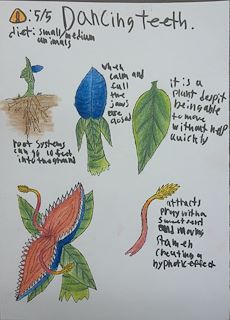 ! : 5/5 Dancing teeth.
diet: small/medium
animals
when
calm and
full
the
jaws
are
closed
it is a
plant despit
being able
to move
without help
quickly
root systems
can go 10 feet
into the ground
attracts
prey with a
sweet
and moving
stamen
creating a
hypnotic effect